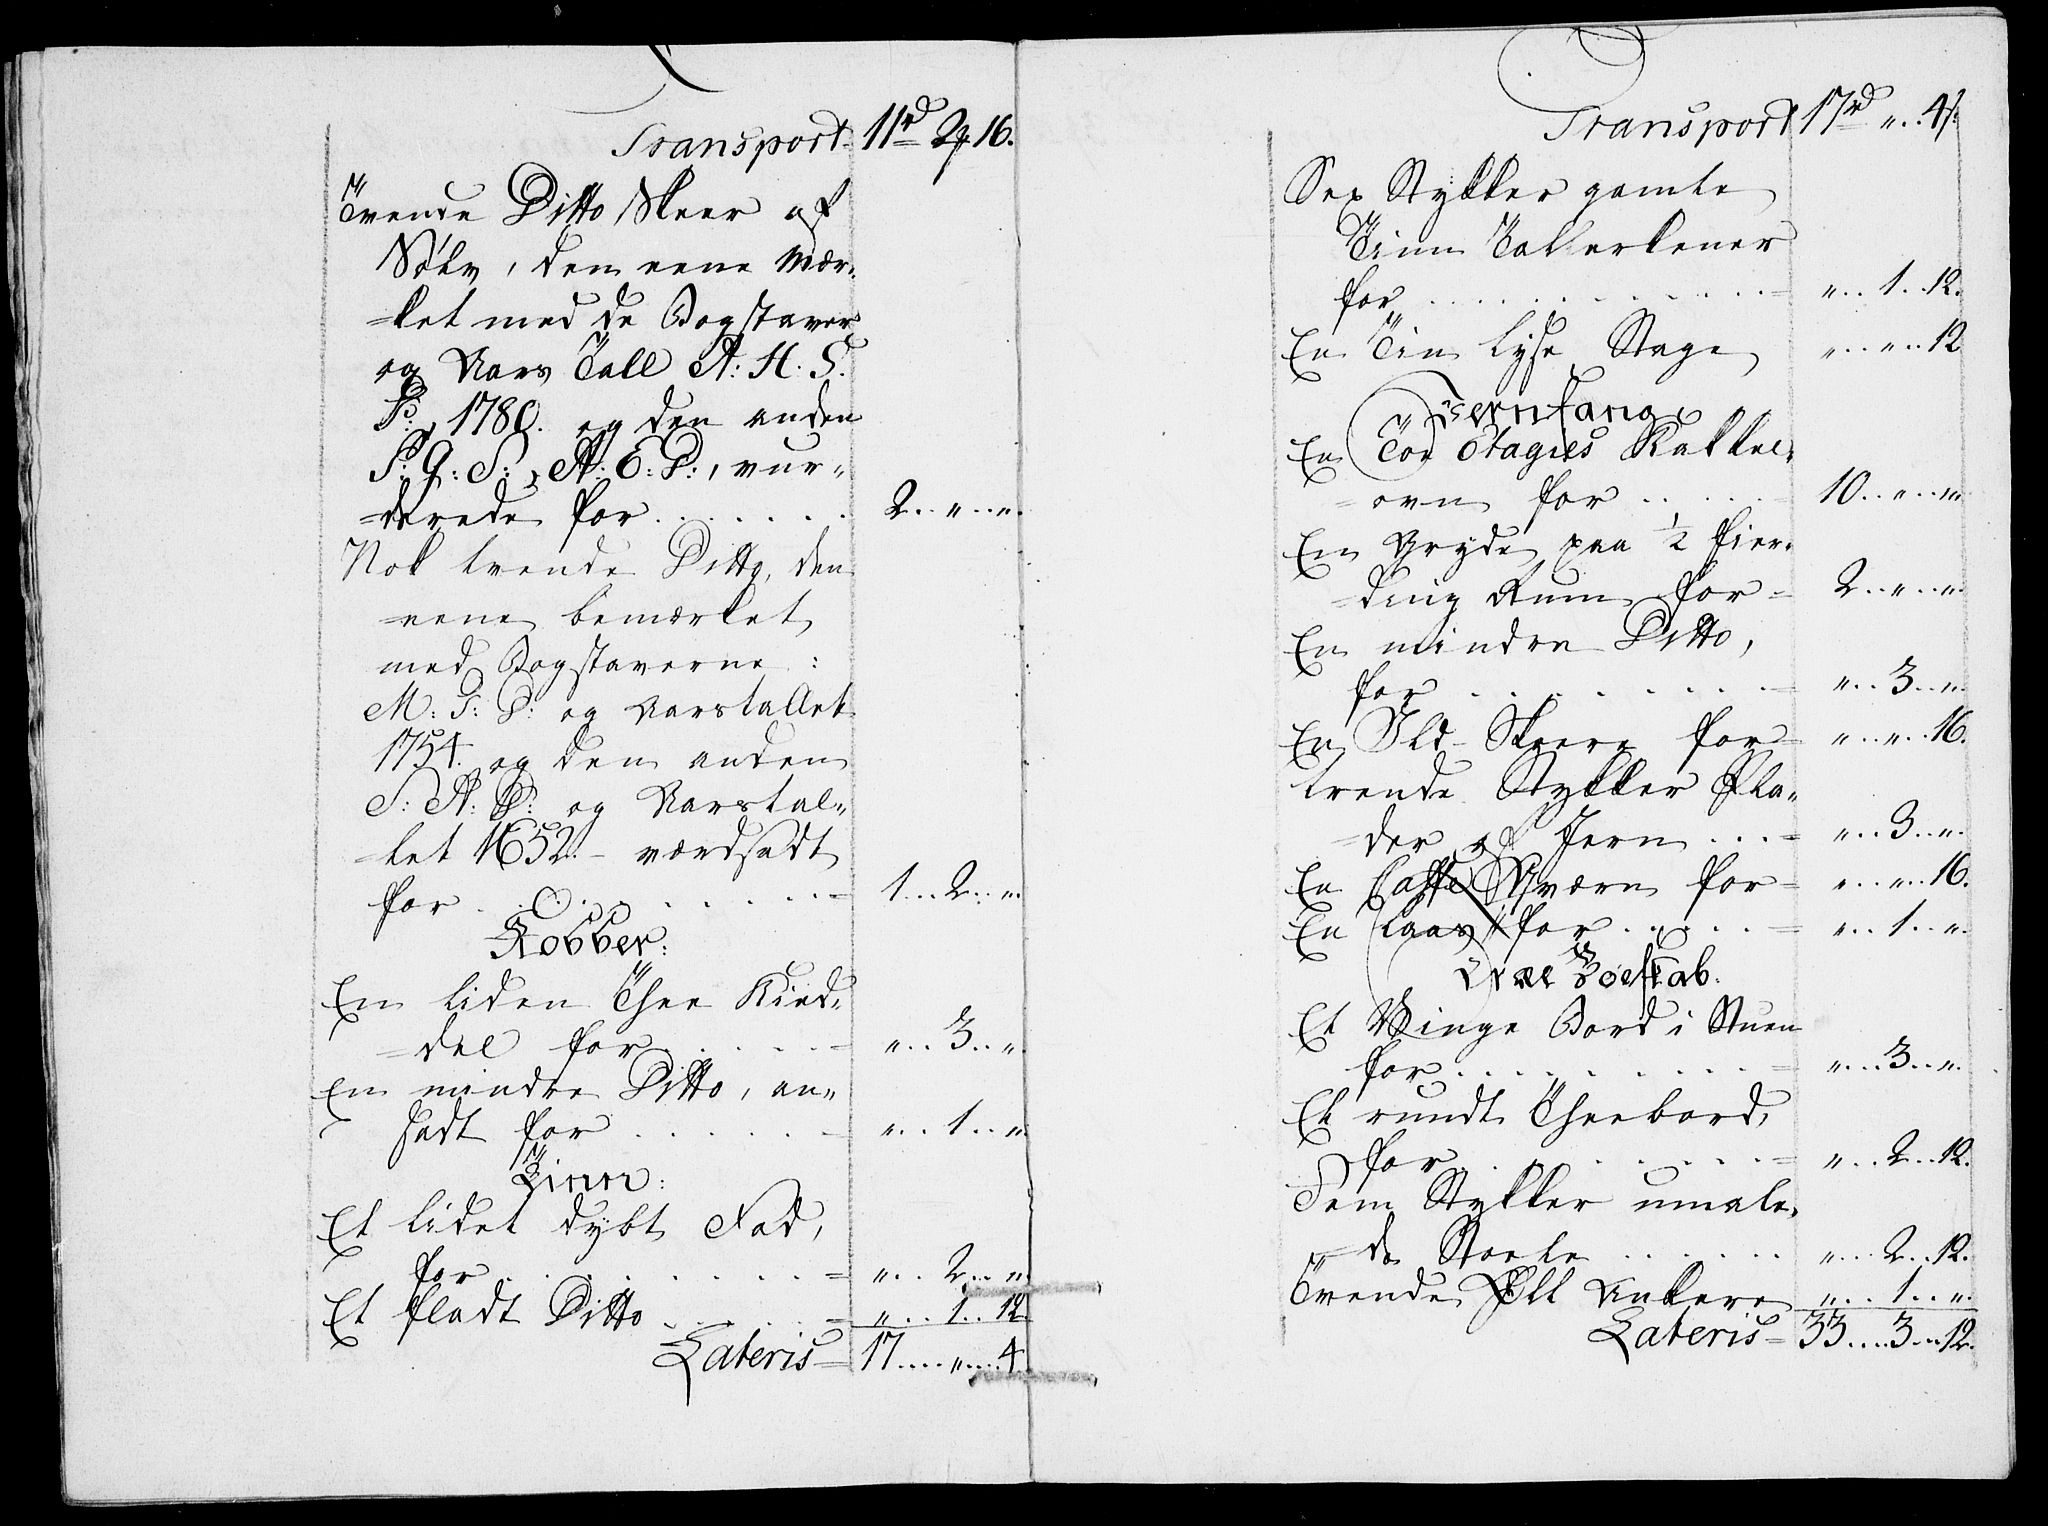 Transport 11rd 2 16.
Tvende Ditto Skeer af
Sölv, den eene Mær-
=ket med de Bogstaver
og Aars Tall A: H: S.
P:, 1780. og den anden
P: G: S:, A: E: P:, vur-
=derede for . . . . . . . 2 .. " .. ".
Nok tvende Ditto, den
eene bemærket
med Bogstaverne :
M: S: P: og Aarstallet
1754. og den anden
S: A: P: og Aarstal-
=let 1652. - værdsadt
for . . . . . . . . . = 1 .. 2 .. ".
Kobber:
En liden Thee Kied-
=del for . . . . . = " .. 3 .. ".
En mindre Ditto, an-
sadt for . . . . . = " .. 1 .. ".
Tinn:
Et lidet dybt Fad,
for . . . . . . . . = " .. 2 .. ".
Et fladt Ditto . . . . . = " .. 1 .. 12.
Lateris = 17 .... " .... 4.
Transport 17rd " .. 4
Sex Stykker gamle
Tinn Tallerkener
for . . . . . . . . . . = " .. 1 .. 12.
En Tin Lyse Stage " .. " .. 12
Jernfang
En Toe Etagies Kakkel-
=ovn for . . . . . 10 .. " .. ".
En Gryde paa 1/2 fier-
=ding Rum for = 2 .. " .. ".
En mindre Ditto,
for . . . . . . . . . = " .. 3 .. ".
En Ild-Skeere for = " .. " .. 16.
trende Stykker Pla-
=der af Jern . . . = " .. 3 .. ".
En Caffe Qværn for = " .. " .. 16.
En Laas for . . . . . = " .. 1 .. ".
Træ Boeskab.
Et Vinge Bord i Stuen
for . . . . . . . . . = " .. 3 .. ".
Et rundt Theebord,
for . . . . . . . . . = " .. 2 .. 12.
Fem Stykker umale-
=de Stoele . . . . . . " .. 2 .. 12.
Tvende Øll Ankere " .. 1 .. ".
Lateris = 33 .... 3 .. 12.